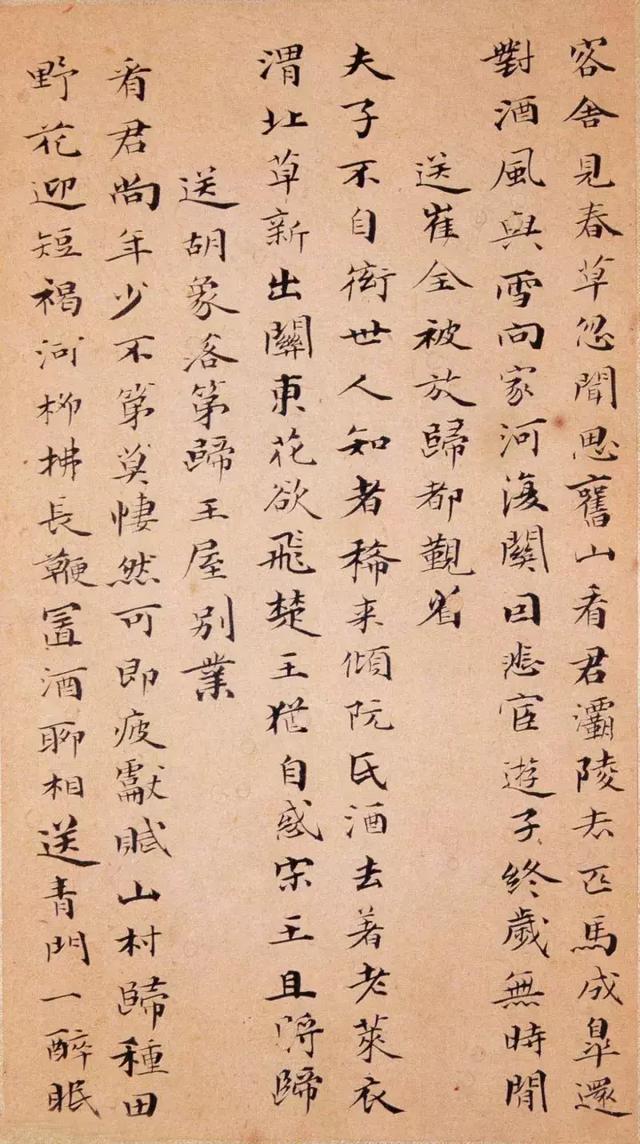 客舍見春草忽聞思舊山看君灞陵去匹馬成臯還
對酒風與雪向家河復關因悲宦遊子終歲無時閒
送崔全被放歸都覲省
夫子不自衒世人知者稀来傾阮氏酒去著老萊衣
渭北草新出關東花欲飛楚王猶自惑宋玉且將歸
送胡象落第歸王屋別業
看君尚年少不第莫悽然可即疲獻賦山村歸種田
野花迎短褐河柳拂長鞭置酒聊相送青門一醉眠